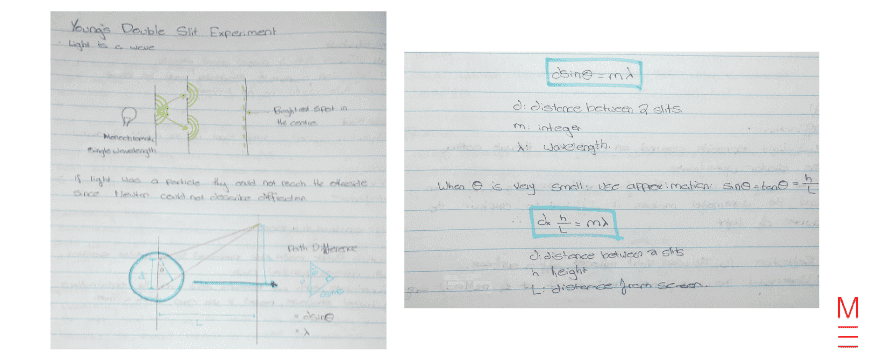 Young's Double Slit Experiment
Light is a wave
Brightest spot in
the centre
Monochromatic
Single Wavelength
If light was a particle they could not reach the otherside
since Newton could not describe diffraction
Path Difference
d
θ
L
= dsinθ
= λ
dsinθ = mλ
d: distance between 2 slits
m: integer
λ: wavelength.
When θ is very small: use approximation: sinθ=tanθ = h/L
d × h/L = mλ
d: distance between 2 slits
h: height
L: distance from screen.
M